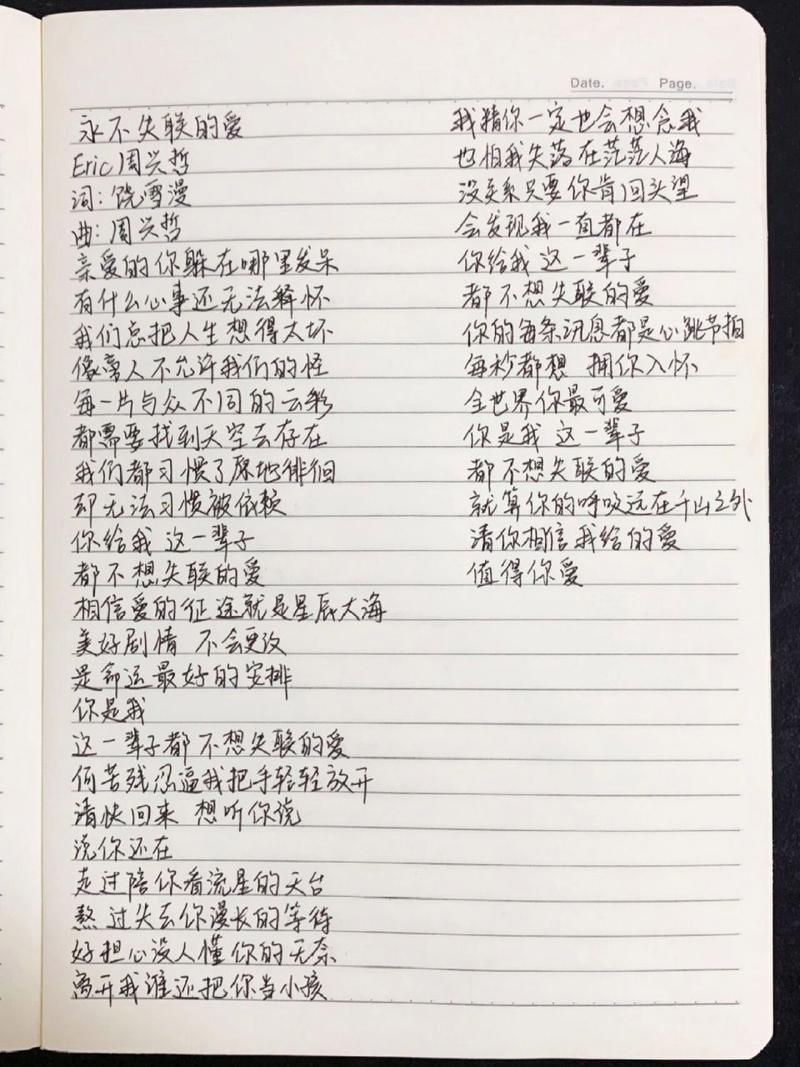 Date. Page.
永不失联的爱
Eric周兴哲
词:饶雪漫
曲:周兴哲
亲爱的你躲在哪里发呆
有什么心事还无法释怀
我们总把人生想得太坏
像旁人不允许我们的怪
每一片与众不同的云彩
都需要找到天空去存在
我们都习惯了原地徘徊
却无法习惯被依赖
你给我 这一辈子
都不想失联的爱
相信爱的征途就是星辰大海
美好剧情 不会更改
是命运最好的安排
你是我
这一辈子都不想失联的爱
何苦残忍逼我把手轻轻放开
请快回来 想听你说
说你还在
走过陪你看流星的天台
熬过失去你漫长的等待
好担心没人懂你的无奈
离开我谁还把你当小孩
我猜你一定也会想念我
也怕我失落在茫茫人海
没关系只要你肯回头望
会发现我一直都在
你给我 这一辈子
都不想失联的爱
你的每条讯息都是心跳节拍
每秒都想 拥你入怀
全世界你最可爱
你是我 这一辈子
都不想失联的爱
就算你的呼吸远在千山之外
请你相信我给的爱
值得你爱